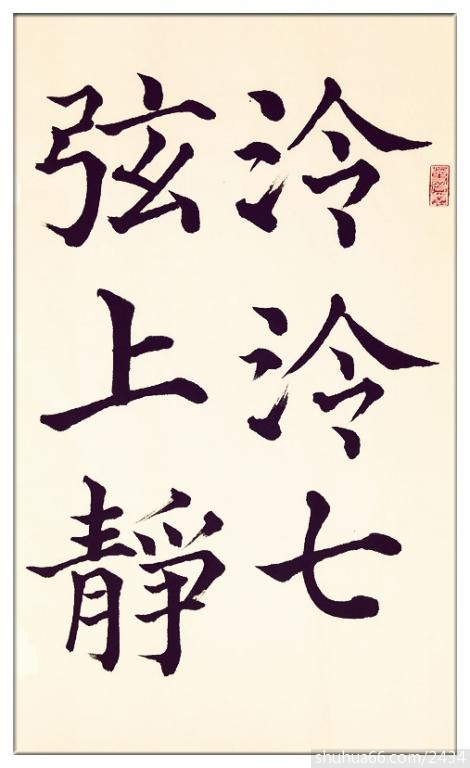 泠泠七
弦上靜
shuhua66.com/2434